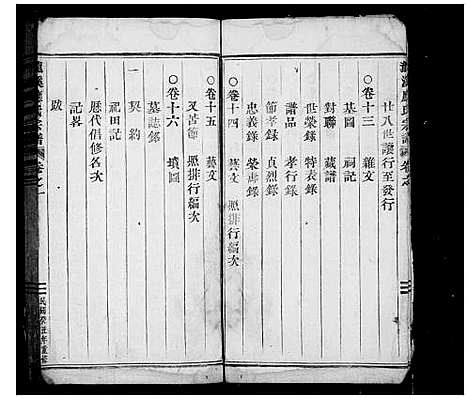 廿八世讓行至發行
○卷十三　雜文
基圖　祠記
對聯　藏譜
世榮錄　特表錄
譜品　孝行錄
節孝錄　貞烈錄
忠義錄　榮壽錄
○卷十四　藝文　照排行編次
○卷十五　藝文
又苦節　照排行編次
○卷十六　墳圖
墓誌銘
契約
祀田記
歷代倡修名次
記畧
跋
氏宗譜
卷之
民國癸丑年重修